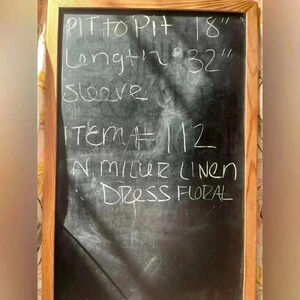 PIT to PIT 18"
Length 32"
Sleeve
ITEM# 112
N. MILLER LINEN
DRESS FLORAL